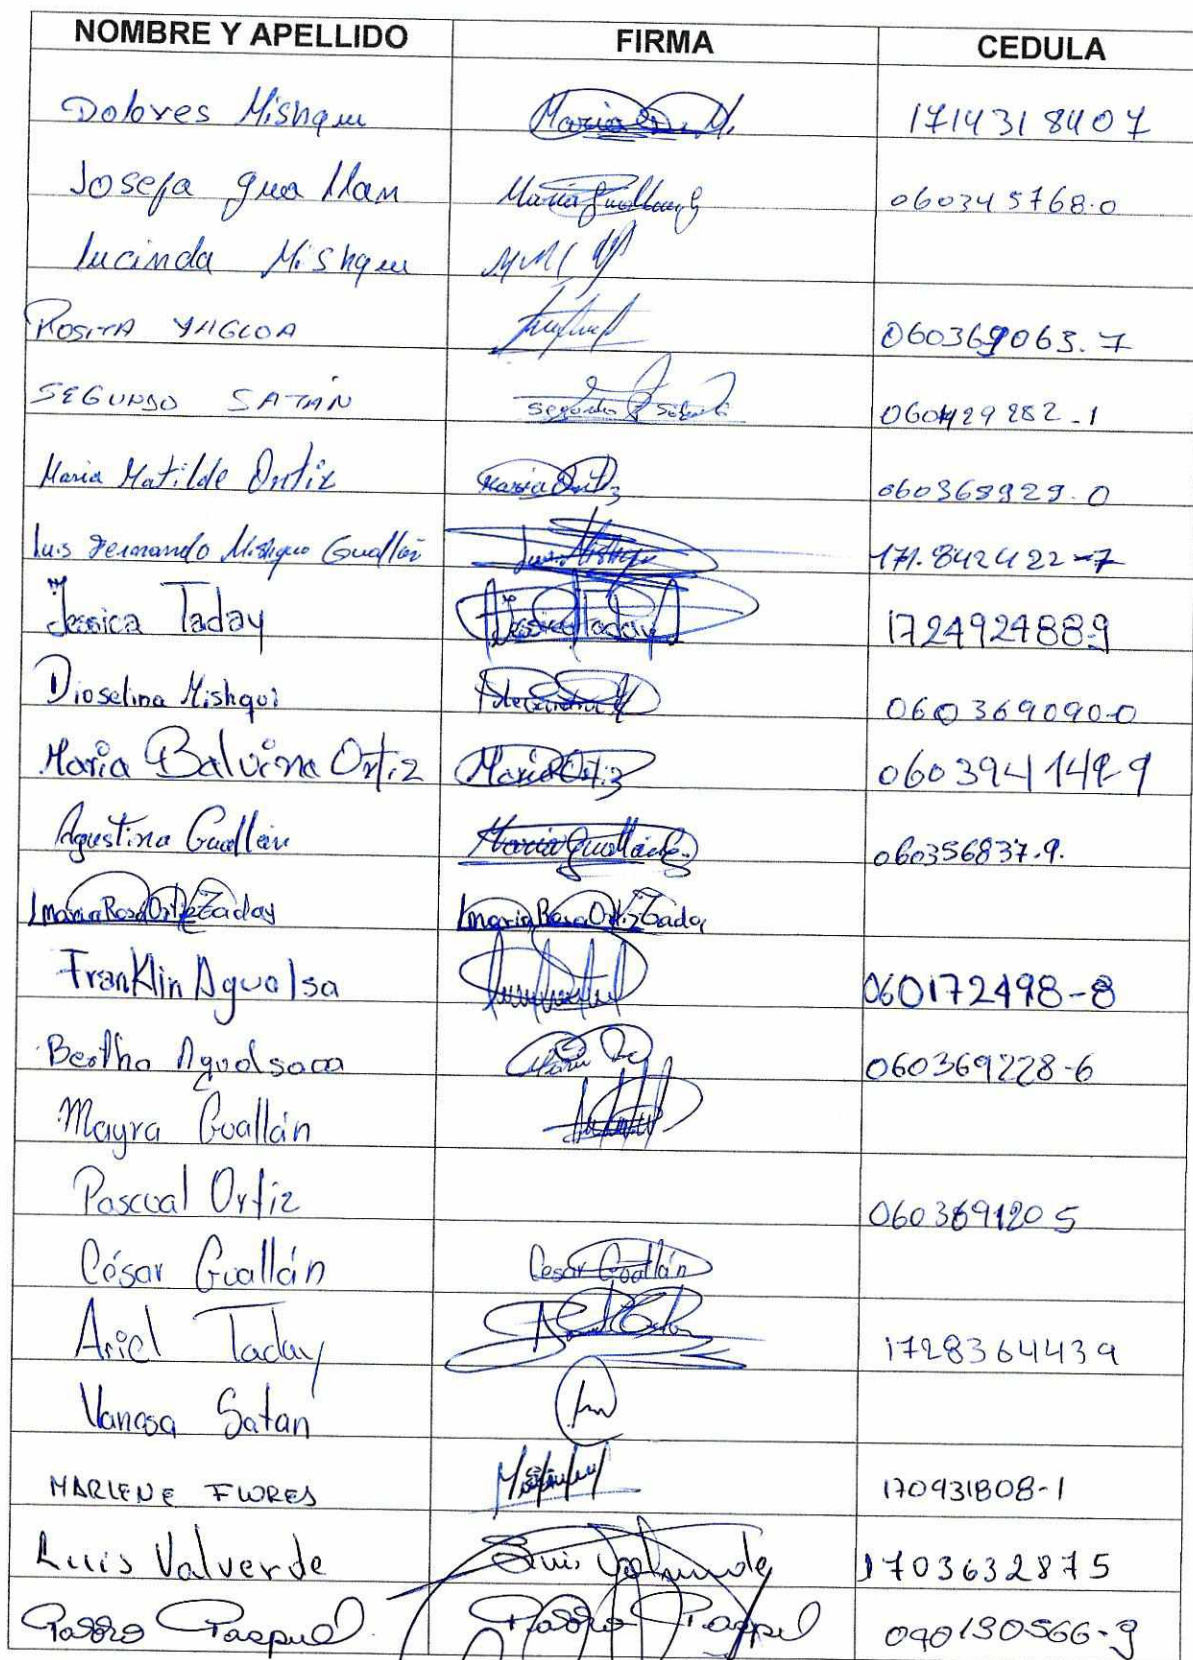 NOMBRE Y APELLIDO FIRMA CEDULA
Dolores Mishqui Maria D. M. 1714318407
Josefa guallan Maria Guallan G 060345768-0
lucinda Mishqui
ROSITA YAGLOA 060369063-7
SEGUNDO SATAN Segundo Satan 060429282-1
Maria Matilde Ortiz Maria Ortiz 060368929-0
Luis Fernando Mishqui Guallán Luis Mishqui 171.842422-7
Jessica Taday Jessica Taday 172492488-9
Dioselina Mishqui 060369090-0
Maria Balvina Ortiz Maria Ortiz 060394149-9
Agustina Guallán Maria Guallán G. 060356837-9.
maria Rosa Ortiz Taday maria Rosa Ortiz Taday
Franklin Agualsa 060172498-8
Bertha Agualsaca 060369228-6
Mayra Guallán
Pascual Ortiz 0603691205
César Guallán Cesar Guallán
Ariel Taday 1728364439
Vanesa Satan
MARLENE FLORES 170931808-1
Luis Valverde Luis Valverde 1703632875
Pedro Paspuel Pedro Paspuel 040130566-9